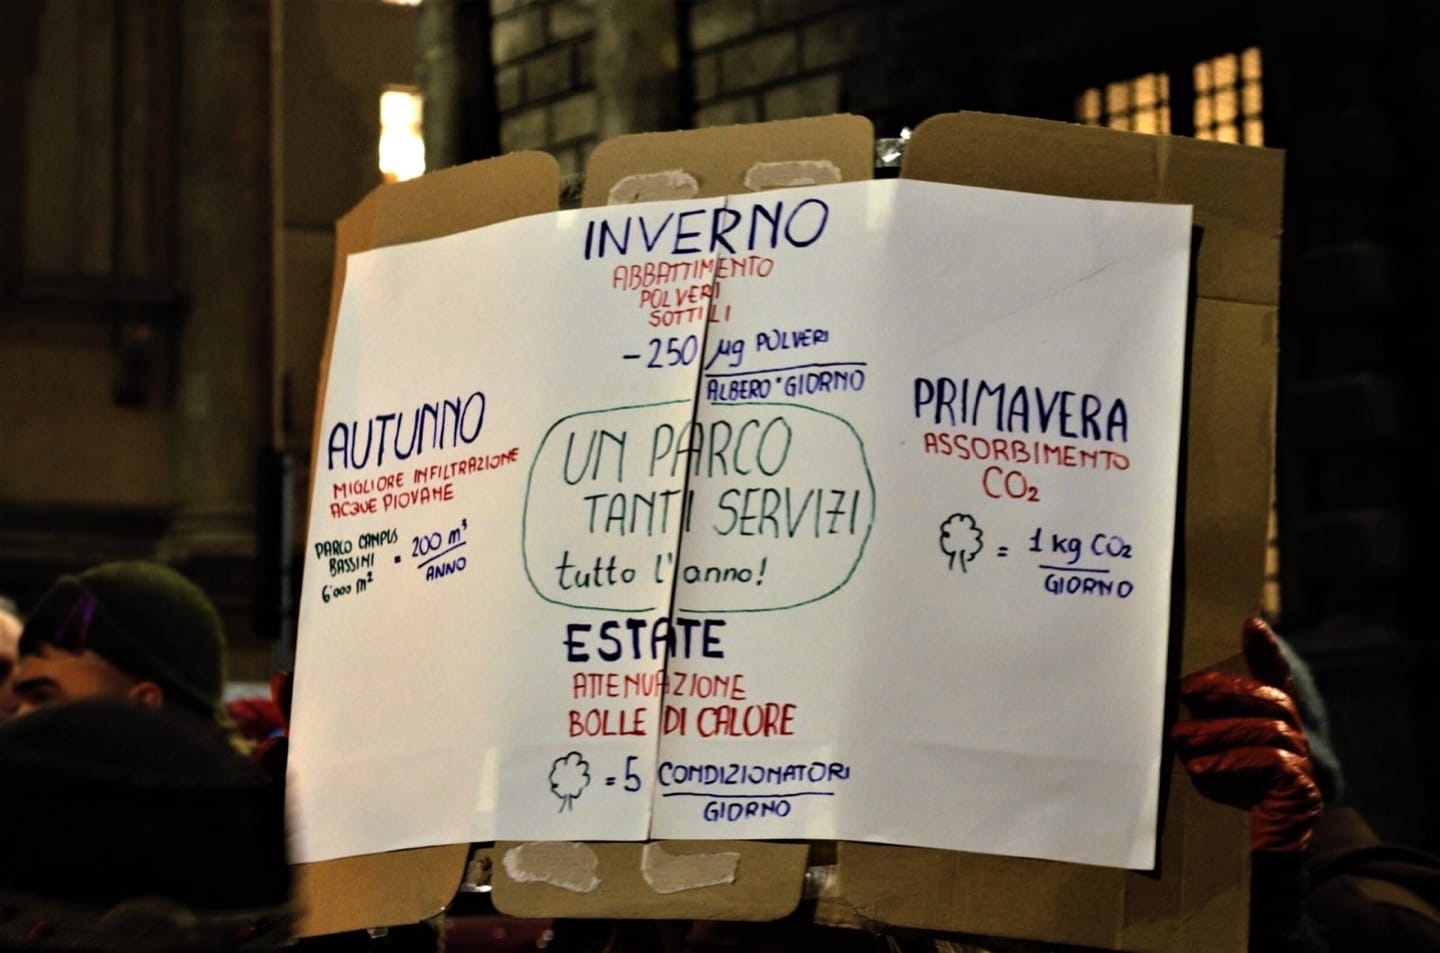 INVERNO
ABBATTIMENTO
POLVERI
SOTTILI
-250 µg POLVERI
ALBERO*GIORNO
AUTUNNO
MIGLIORE INFILTRAZIONE
ACQUE PIOVANE
PARCO CAMPUS
BASSINI
6'000 m²
= 200 m³
ANNO
UN PARCO
TANTI SERVIZI
tutto l'anno!
PRIMAVERA
ASSORBIMENTO
CO₂
= 1 kg CO₂
GIORNO
ESTATE
ATTENUAZIONE
BOLLE DI CALORE
= 5 CONDIZIONATORI
GIORNO